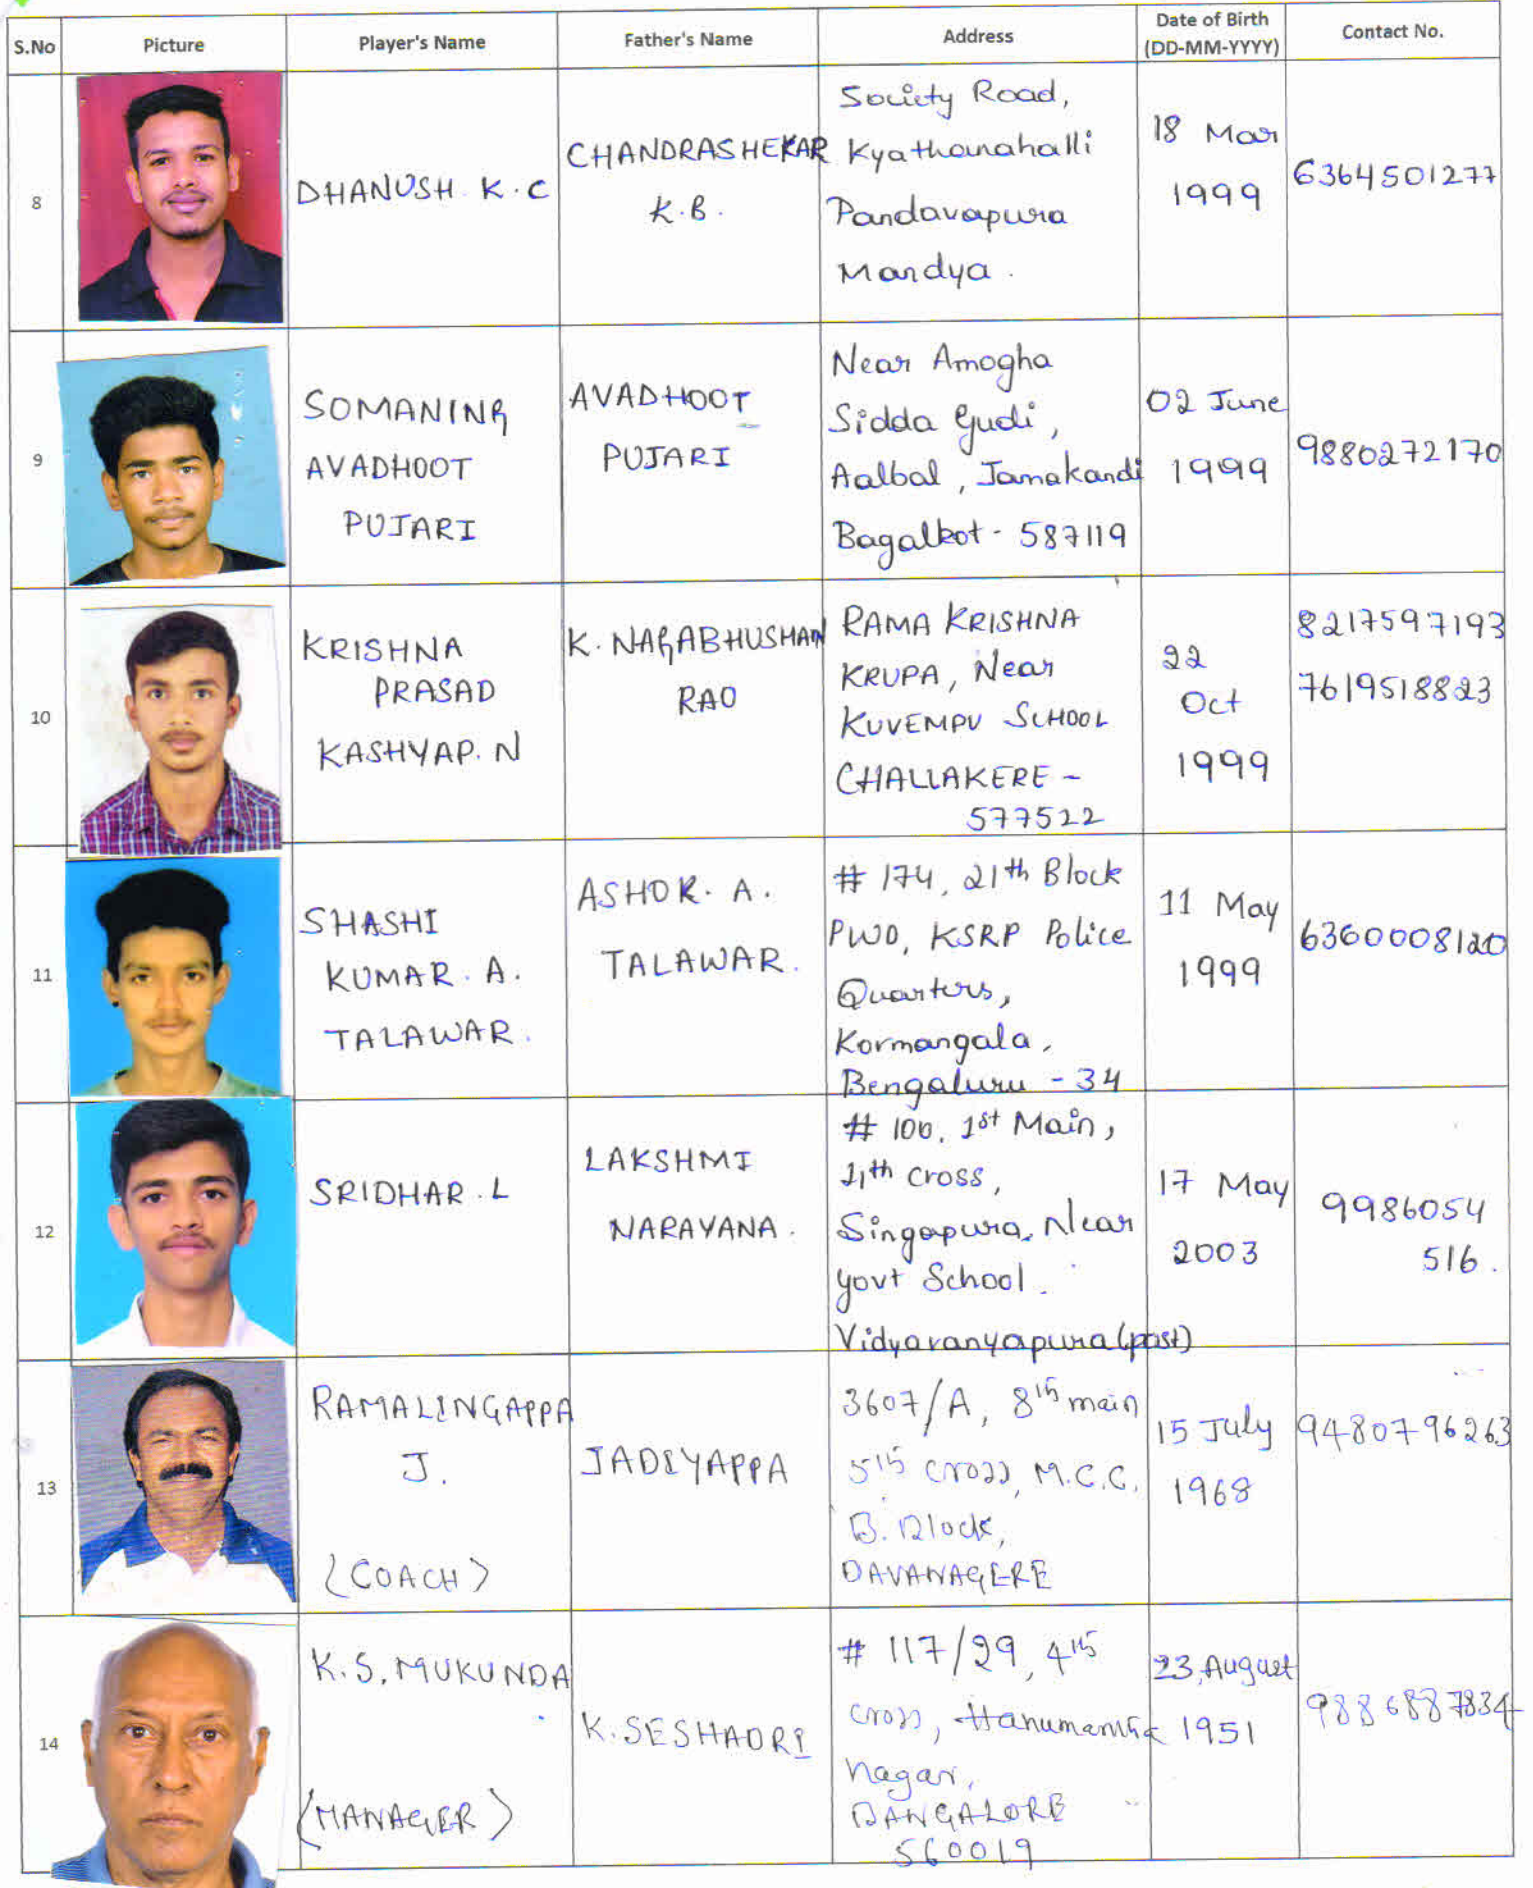 S.No Picture Player's Name Father's Name Address Date of Birth (DD-MM-YYYY) Contact No.
8
DHANUSH K.C
CHANDRASHEKAR
K.B.
Society Road,
Kyathanahalli
Pandavapura
Mandya.
18 Mar
1999
6364501277
9
SOMANING
AVADHOOT
PUJARI
AVADHOOT
PUJARI
Near Amogha
Sidda Gudi,
Aalbal, Jamakandi
Bagalkot - 587119
02 June
1999
9880272170
10
KRISHNA
PRASAD
KASHYAP. N
K. NAGABHUSHAN
RAO
RAMA KRISHNA
KRUPA, Near
KUVEMPU SCHOOL
CHALLAKERE -
577522
22
Oct
1999
8217597193
7619518823
11
SHASHI
KUMAR. A.
TALAWAR.
ASHOK. A.
TALAWAR.
# 174, 21th Block
PWD, KSRP Police
Quarters,
Kormangala,
Bengaluru - 34
11 May
1999
6360008120
12
SRIDHAR. L
LAKSHMI
NARAYANA.
# 106, 1st Main,
11th cross,
Singapura, Near
govt School.
Vidyaranyapura (post)
17 May
2003
9986054
516.
13
RAMALINGAPPA
J.
(COACH)
JADIYAPPA
3607/A, 8th main
5th cross, M.C.C.
B. Block,
DAVANAGERE
15 July
1968
9480796263
14
K.S. MUKUNDA
(MANAGER)
K. SESHADRI
# 117/29, 4th
cross, Hanumantha
nagar,
BANGALORE
560019
23, August
1951
9886887834